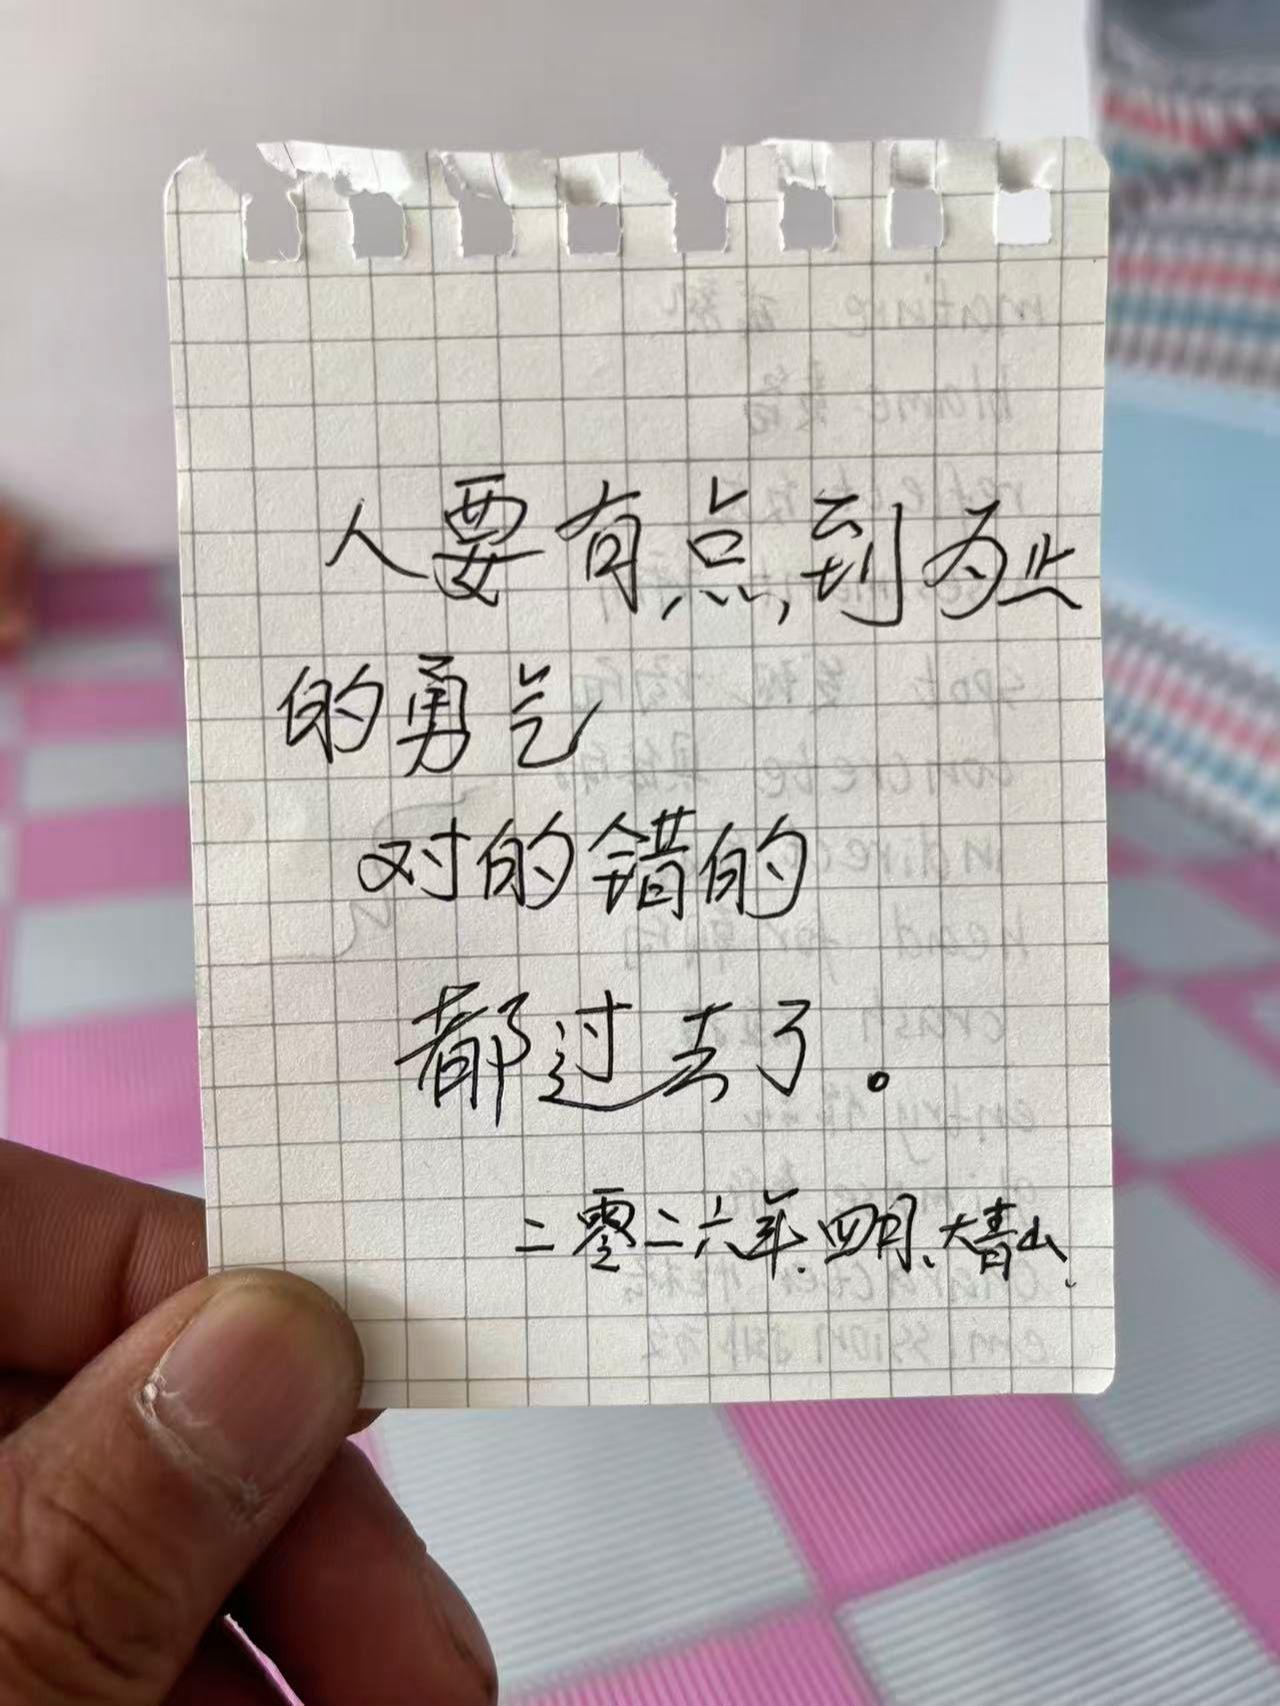 人要有点到为止
的勇气
对的错的
都过去了。
二零二六年.四月、大青山、